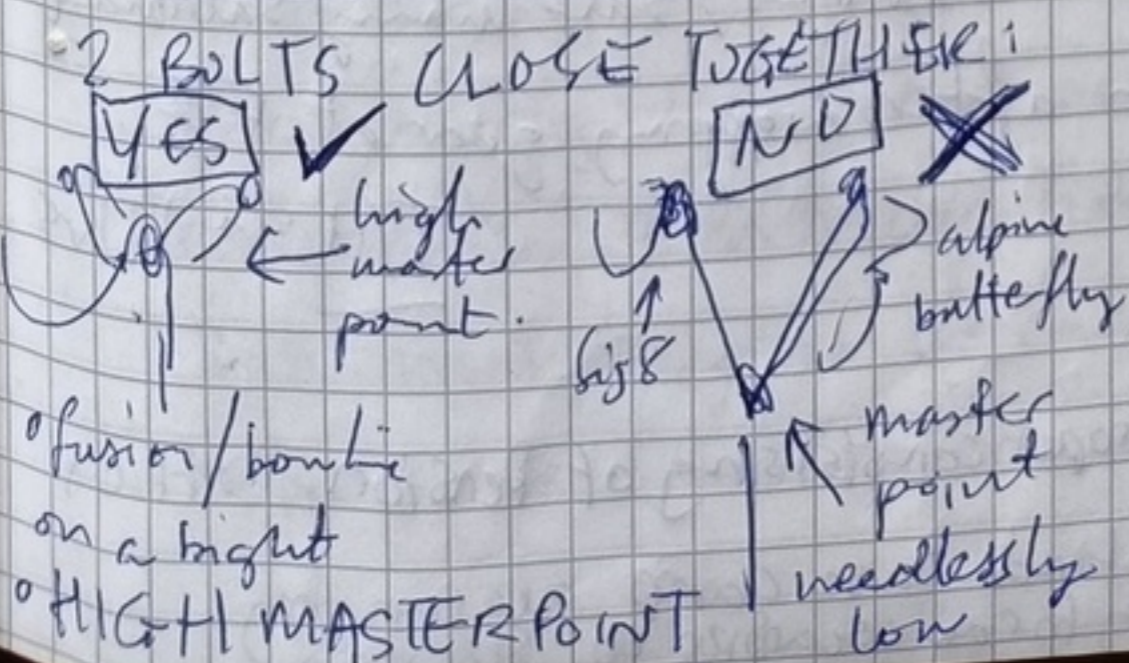 2 BOLTS CLOSE TOGETHER:
YES
NO
high
master
point.
alpine
butterfly
fig 8
master
point
needlessly
low
fusion/bowline
on a bight
HIGH MASTERPOINT